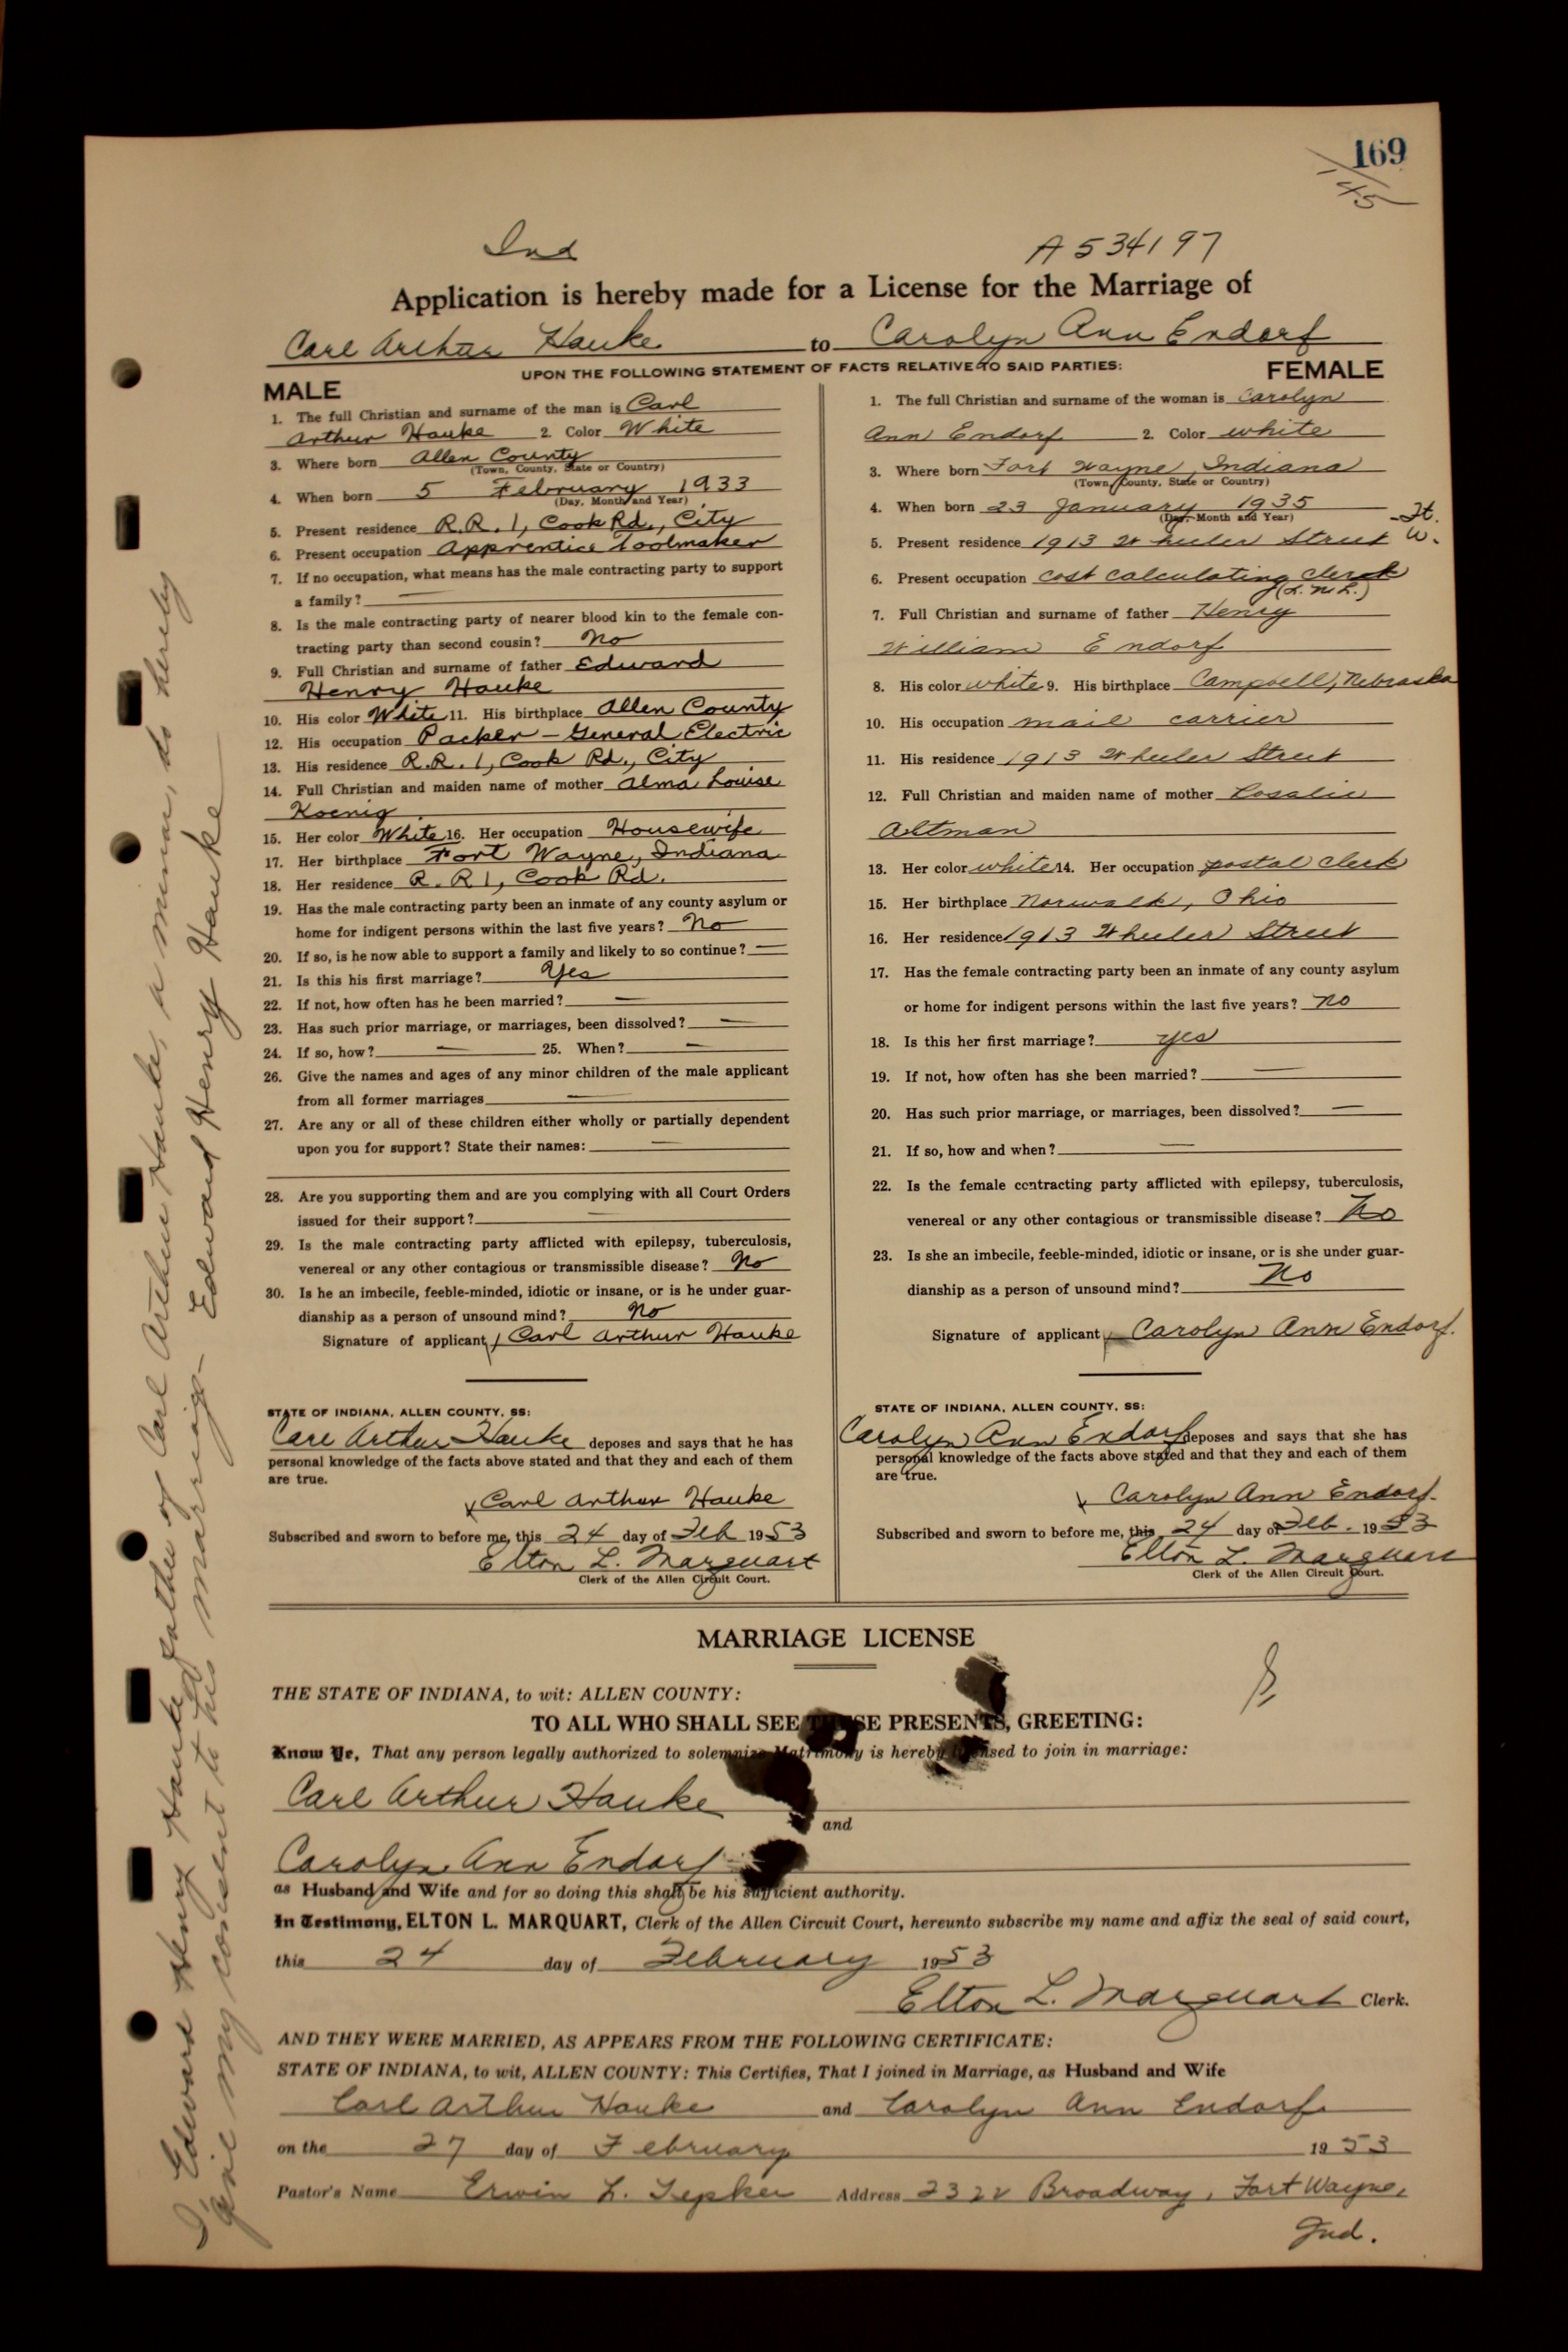 169
145
Ind
A 534197
Application is hereby made for a License for the Marriage of
Carl Arthur Hauke to Carolyn Ann Endorf
UPON THE FOLLOWING STATEMENT OF FACTS RELATIVE TO SAID PARTIES:
MALE
1. The full Christian and surname of the man is Carl
Arthur Hauke 2. Color White
3. Where born Allen County
(Town, County, State or Country)
4. When born 5 February 1933
(Day, Month and Year)
5. Present residence R.R. 1, Cook Rd., City
6. Present occupation Apprentice Toolmaker
7. If no occupation, what means has the male contracting party to support
a family? —
8. Is the male contracting party of nearer blood kin to the female con-
tracting party than second cousin? No
9. Full Christian and surname of father Edward
Henry Hauke
10. His color White 11. His birthplace Allen County
12. His occupation Packer - General Electric
13. His residence R.R. 1, Cook Rd., City
14. Full Christian and maiden name of mother Alma Louise
Koenig
15. Her color White 16. Her occupation Housewife
17. Her birthplace Fort Wayne, Indiana
18. Her residence R. R 1, Cook Rd.
19. Has the male contracting party been an inmate of any county asylum or
home for indigent persons within the last five years? No
20. If so, is he now able to support a family and likely to so continue? —
21. Is this his first marriage? Yes
22. If not, how often has he been married? —
23. Has such prior marriage, or marriages, been dissolved? —
24. If so, how? — 25. When? —
26. Give the names and ages of any minor children of the male applicant
from all former marriages —
27. Are any or all of these children either wholly or partially dependent
upon you for support? State their names: —
28. Are you supporting them and are you complying with all Court Orders
issued for their support? —
29. Is the male contracting party afflicted with epilepsy, tuberculosis,
venereal or any other contagious or transmissible disease? No
30. Is he an imbecile, feeble-minded, idiotic or insane, or is he under guar-
dianship as a person of unsound mind? No
Signature of applicant Carl Arthur Hauke
STATE OF INDIANA, ALLEN COUNTY, SS:
Carl Arthur Hauke deposes and says that he has
personal knowledge of the facts above stated and that they and each of them
are true.
x Carl Arthur Hauke
Subscribed and sworn to before me, this 24 day of Feb 1953
Elton L. Marquart
Clerk of the Allen Circuit Court.
FEMALE
1. The full Christian and surname of the woman is Carolyn
Ann Endorf 2. Color white
3. Where born Fort Wayne, Indiana
(Town, County, State or Country)
4. When born 23 January 1935
(Day, Month and Year)
5. Present residence 1913 Wheeler Street Ft. W.
6. Present occupation cost calculating clerk
(L. N. L.)
7. Full Christian and surname of father Henry
William Endorf
8. His color white 9. His birthplace Campbell, Nebraska
10. His occupation mail carrier
11. His residence 1913 Wheeler Street
12. Full Christian and maiden name of mother Rosalie
Altman
13. Her color white 14. Her occupation postal clerk
15. Her birthplace Norwalk, Ohio
16. Her residence 1913 Wheeler Street
17. Has the female contracting party been an inmate of any county asylum
or home for indigent persons within the last five years? no
18. Is this her first marriage? yes
19. If not, how often has she been married? —
20. Has such prior marriage, or marriages, been dissolved? —
21. If so, how and when? —
22. Is the female contracting party afflicted with epilepsy, tuberculosis,
venereal or any other contagious or transmissible disease? No
23. Is she an imbecile, feeble-minded, idiotic or insane, or is she under guar-
dianship as a person of unsound mind? No
Signature of applicant Carolyn Ann Endorf.
STATE OF INDIANA, ALLEN COUNTY, SS:
Carolyn Ann Endorf deposes and says that she has
personal knowledge of the facts above stated and that they and each of them
are true.
x Carolyn Ann Endorf.
Subscribed and sworn to before me, this 24 day of Feb. 1953
Elton L. Marquart
Clerk of the Allen Circuit Court.
MARRIAGE LICENSE
THE STATE OF INDIANA, to wit: ALLEN COUNTY:
TO ALL WHO SHALL SEE THESE PRESENTS, GREETING:
Know Ye, That any person legally authorized to solemnize Matrimony is hereby licensed to join in marriage:
Carl Arthur Hauke
and
Carolyn Ann Endorf
as Husband and Wife and for so doing this shall be his sufficient authority.
In Testimony, ELTON L. MARQUART, Clerk of the Allen Circuit Court, hereunto subscribe my name and affix the seal of said court,
this 24 day of February 1953
Elton L. Marquart Clerk.
AND THEY WERE MARRIED, AS APPEARS FROM THE FOLLOWING CERTIFICATE:
STATE OF INDIANA, to wit, ALLEN COUNTY: This Certifies, That I joined in Marriage, as Husband and Wife
Carl Arthur Hauke and Carolyn Ann Endorf
on the 27 day of February 1953
Pastor's Name Erwin L. Tepker Address 2322 Broadway, Fort Wayne,
Ind.
I, Edward Henry Hauke, father of Carl Arthur Hauke, a minor, do hereby
give my consent to his marriage— Edward Henry Hauke